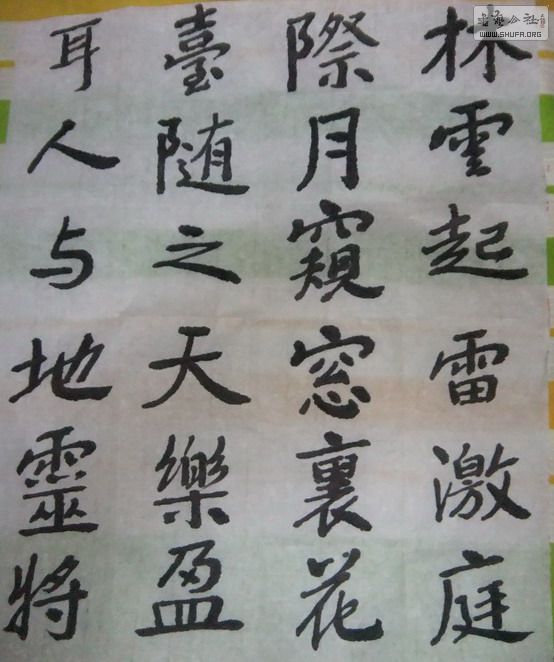 林雲起雷激庭
際月窺窓裏花
臺随之天樂盈
耳人与地靈將
WWW.SHUFA.ORG